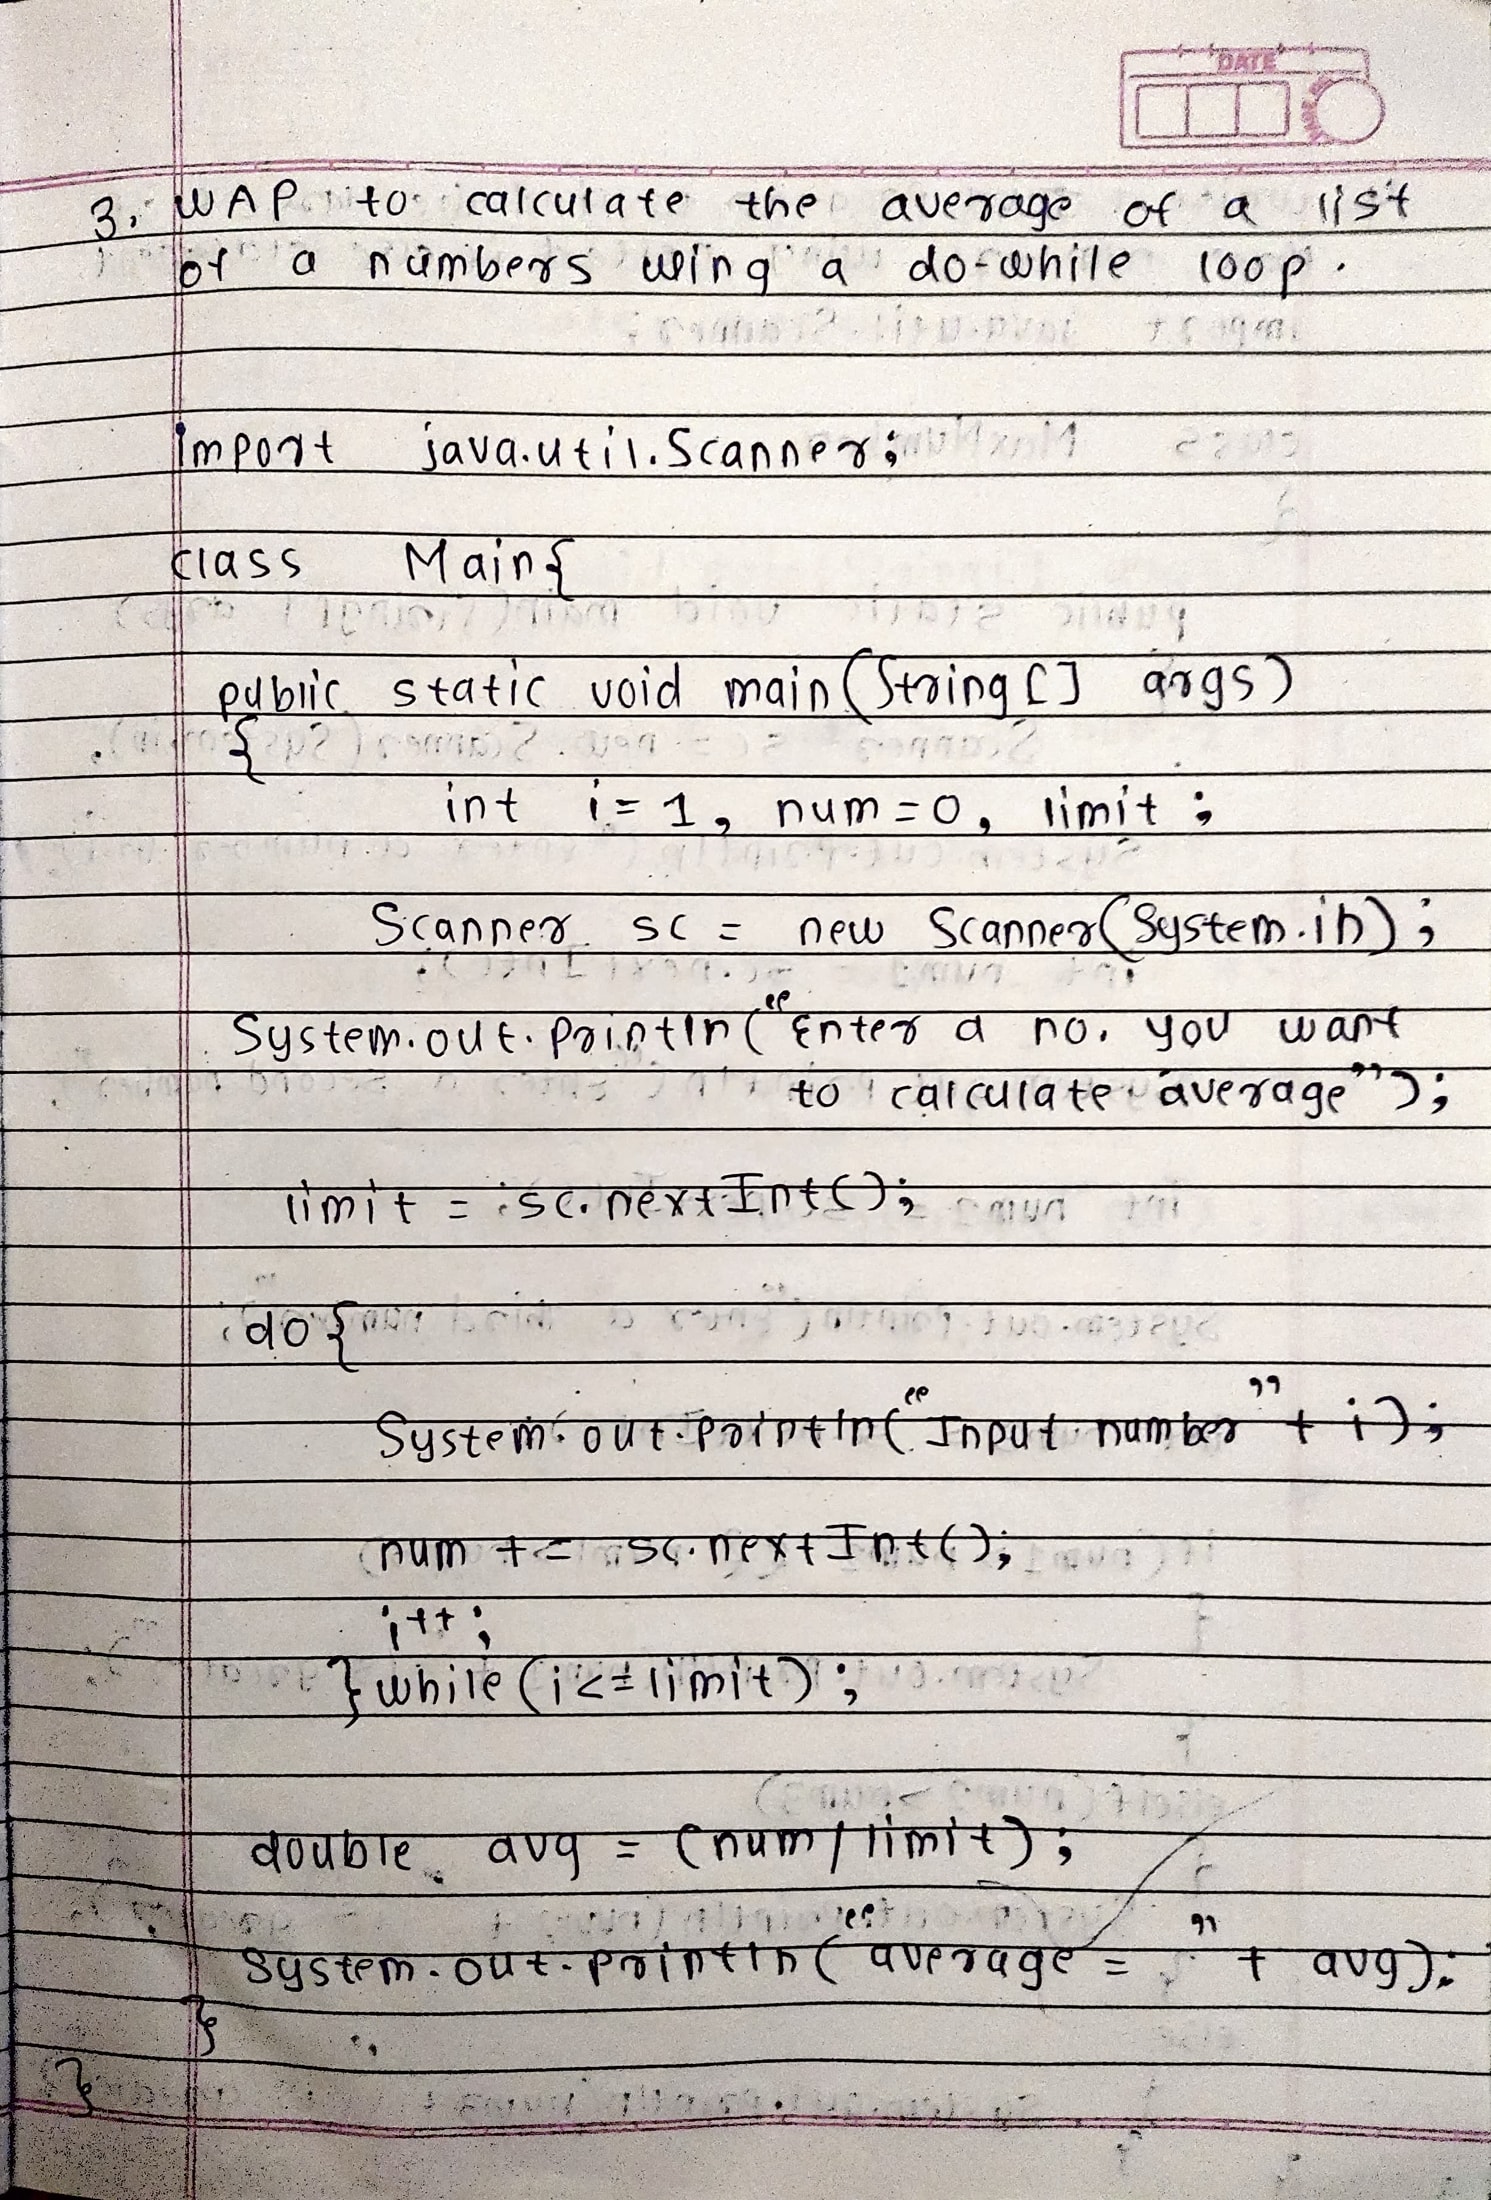 DATE
3. WAP to calculate the average of a list
of a numbers using a do-while loop.
import java.util.Scanner;
class Main{
public static void main(String[] args)
{
int i=1, num=0, limit;
Scanner sc = new Scanner(System.in);
System.out.println("Enter a no. you want
to calculate average");
limit = sc.nextInt();
do{
System.out.println("Input number"+i);
num += sc.nextInt();
i++;
}while(i<=limit);
double avg = (num/limit);
System.out.println("average = " + avg);
}
}